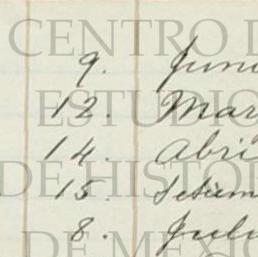 CENTRO D
9. Juni
ESTUDIO
12. Mar
14. Abri
DE HISTOR
15. Setiem
8. Juli
DE MEXIC